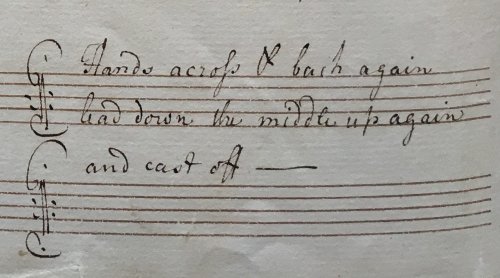 Hands across & back again
lead down the middle up again
and cast off —